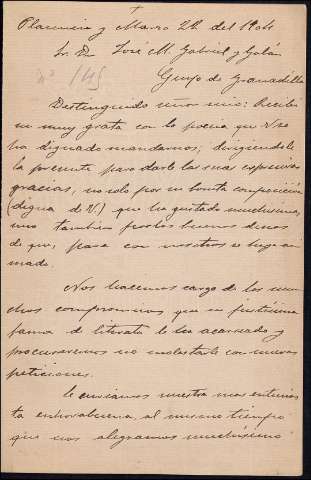 Plasencia y Marzo 22 del 1904
Sr. Dn José M. Gabriel y Galán
nº 145
Guijo de Granadilla
Distinguido Sr mio: Recibí
su muy grata con la poesia que V. se
ha dignado mandarnos, dirigiendole
la presente para darle las mas expresivas
gracias, no solo por su bonita composición
(digna de V.) que ha gustado muchisimo,
sino tambien por los buenos deseos
de que, para con nosotros se haya ani
mado.
Nos hacemos cargo de los mu
chos compromisos que su justisima
fama de literato le ha acarreado y
procuraremos no molestarle con nuevas
peticiones.
Le enviamos nuestra mas entusias
ta enhorabuena, al mismo tiempo
que nos alegramos muchisimo